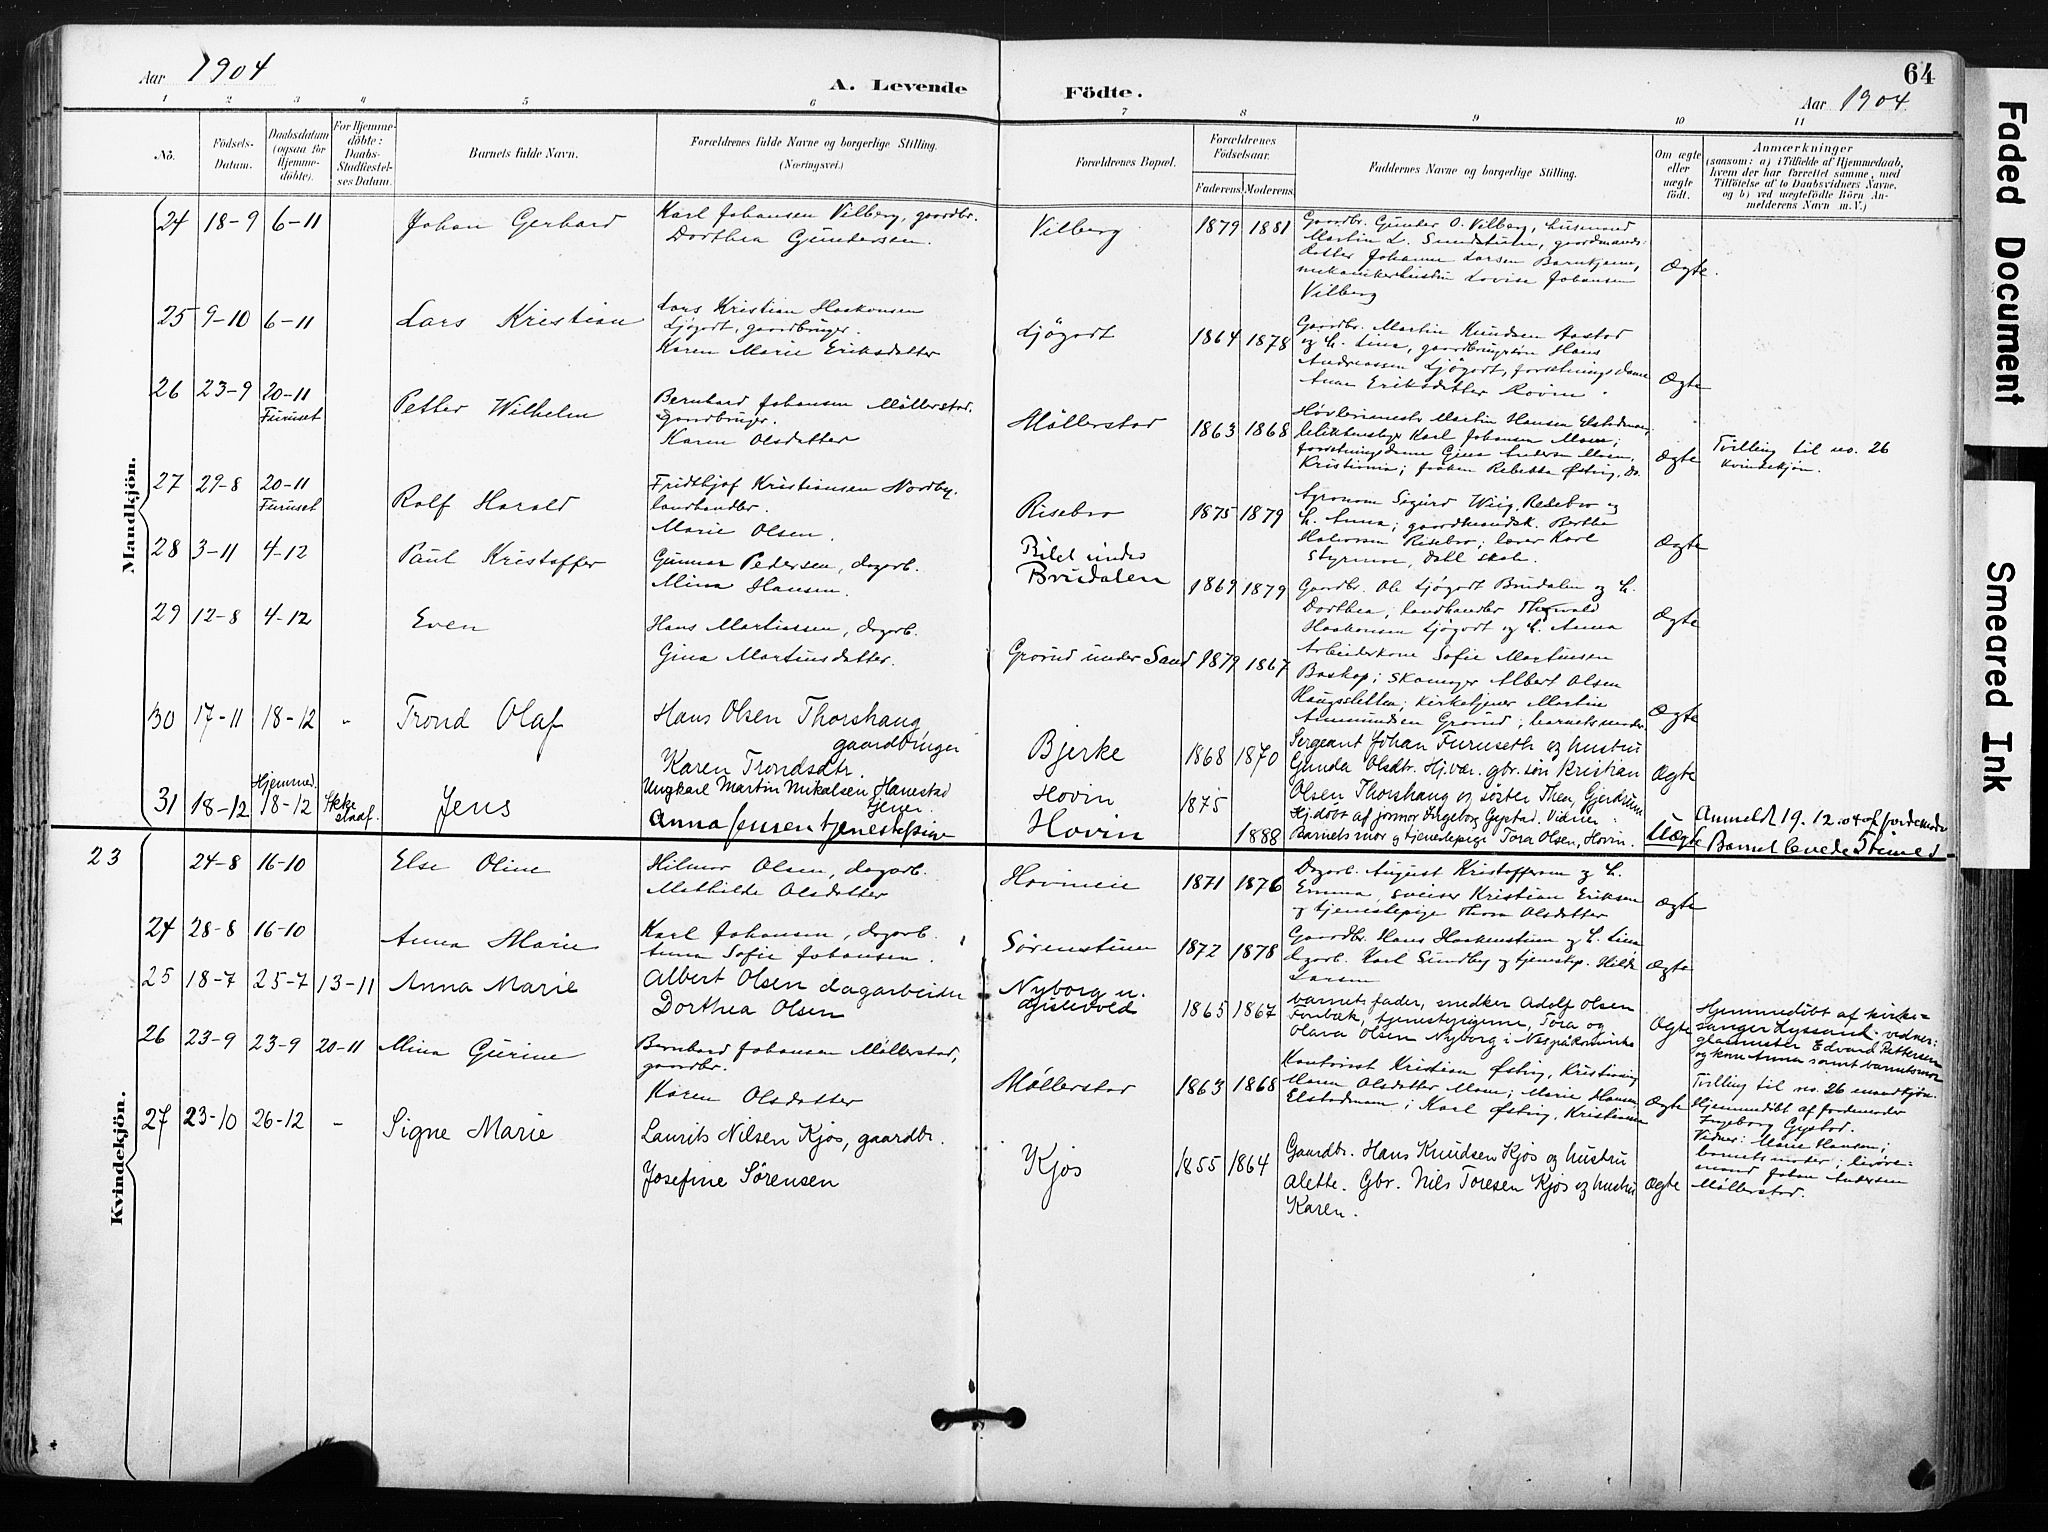 Aar 1904
A. Levende Födte.
64
Aar 1904
1 2 3 4 5 6 7 8 9 10 11
No.
Födsels-Datum.
Daabsdatum (ogsaa for Hjemme-döbte).
For Hjemme-döbte: Daabs-Stadfæstel-ses Datum.
Barnets fulde Navn.
Forældrenes fulde Navne og borgerlige Stilling. (Næringsvei.)
Forældrenes Bopæl.
Forældrenes Födselsaar.
Faderens. Moderens.
Faddernes Navne og borgerlige Stilling.
Om ægte eller uægte födt.
Anmærkninger
(saasom: a) i Tilfælde af Hjemmedaab, hvem der har forrettet samme, med Tilföielse af to Daabsvidners Navne. og b) ved uægtefödte Börn An-melderens Navn m. V.)
Mandkjön.
24 18-9 6-11 Johan Gerhard
Karl Johansen Vilberg, gaardbr.
Dorthea Gundersen.
Vilberg 1879 1881
Gaardbr. Gunder O. Vilberg, husmand
Martin L. Sundstuen, gaardmands-
datter Johanne Larsen
Lovise Johansen
Vilberg
Ægte.
25 9-10 6-11 Lars Kristian
Lars Kristian Haakonsen
Ljögodt, gaardbruger.
Karen Marie Eriksdatter
Ljögodt 1864 1878
Gaardbr. Martin Knudsen Aastad
og h. Lina, gaardbrugersön Hans
Andreassen Ljögodt, forretningsdame
Anna Eriksdatter Hovin.
Ægte
26 23-9 20-11 Furuset Petter Wilhelm
Bernhard Johansen Möllerstad.
gaardbruger.
Karen Olsdatter
Möllerstad 1863 1868
Martin Hansen
Karl Johansen Moen;
forretningsdame Gina Andersen Moen,
Kristiania; fröken Rebekka Østby, do.
Ægte
Tvilling til no. 26
kvindekjön.
27 29-8 20-11 Furuset Rolf Harald
Fridthjof Kristiansen Nordby.
landhandler.
Marie Olsen.
Risebro 1875 1879
Agronom Sigurd Wiig, Risebro og
h. Anna; Berthe
Halvorsen Risebro; lærer Karl
Styrmoe, Dahl skole.
Ægte
28 3-11 4-12 Paul Kristoffer
Gunnar Pedersen, dagarb.
Mina Hansen.
Bilet under
Brudalen 1869 1879
Gaardbr. Ole Ljögodt Brudalen og h.
Dorthea; landhandler Thorvald
Haakonsen Ljögodt og h. Anna
Ægte
29 12-8 4-12 Even
Hans Martinsen, dagarb.
Gina Martinsdatter.
Grönd under Sand 1879 1867
Arbeiderkone Sofie Martinsen
Baskop; skomager Albert Olsen
Haugsletten; kirketjener Martin
Ammundsen Grönd; barnets moder
Ægte
30 17-11 18-12 - Trond Olaf
Hans Olsen Thorshaug
gaardbruger
Karen Trondsdtr.
Bjerke 1868 1870
Sergeant Johan Furuseth og hustru
Gunda Olsdtr. Hj.vær. gbr. sön Kristian
Olsen Thorshaug og söster Thea, Gjerdrum
Ægte
31 18-12 Hjemmed. 18-12 Ikke stadf. Jens
Ungkarl Martin Mikalsen Hanestad
tjener
Anna Jensen tjenestepige
Hovin
Hovin 1875 1888
Hj.döbt af jormor Ingeborg Gystad. Vidner
Barnets mor og tjenestepige Tora Olsen, Hovin.
Uægte
Anmeldt 19.12.04 af jordemoder
Barnet levede 5 timer
Kvindekjön.
23 24-8 16-10 Else Oline
Hilmar Olsen, dagarb.
Mathilde Olsdatter
Hovineie 1871 1876
Dagarb. August Kristoffersen og h.
Emma, sveiser Kristian Eriksen
og tjenestepige Thora Olsdatter
Ægte
24 28-8 16-10 Anna Marie
Karl Johansen, dagarb.
Anna Sofie Johansen.
Sörenstuen 1872 1878
Gaardbr. Hans Haakenstuen og h. Lina
dagarb. Karl Sundby og tjenestep. Hilda
Larsen
Ægte
25 18-7 25-7 13-11 Anna Marie
Albert Olsen dagarbeider
Dorthea Olsen
Nyborg u.
Gislevold 1865 1867
barnets fader, smedker Adolf Olsen
Fonbæk, tjenestepigerne, Tora og
Olava Olsen Nyborg i Nes
Ægte
Hjemmedöbt af kirke-
sanger Lyssand, vidner:
glasmester Edvard Pettersen
og kone Anna samt barnets mor
26 23-9 23-9 20-11 Mina Gurine
Bernhard Johansen Möllerstad,
gaardbr.
Karen Olsdatter
Möllerstad 1863 1868
Kontorist Kristian Østby, Kristiania
Maren Olsdatter Moen; Marie Hansen
Elstadmoen; Karl Østby, Kristiania
Ægte
Tvilling til no. 26 mandkjön.
Hjemmedöbt af jordemoder
Ingeborg Gystad.
Vidner: Marie Hansen;
barnets moder;
mand Johan Andersen
Möllerstad.
27 23-10 26-12 - Signe Marie
Laurits Nilsen Kjos, gaardbr.
Josefine Sörensen
Kjos 1855 1864
Gaardbr. Hans Knudsen Kjos og hustru
Alette. Gbr. Nils Toresen Kjos og hustru
Karen.
Ægte
Faded Document
Smeared Ink